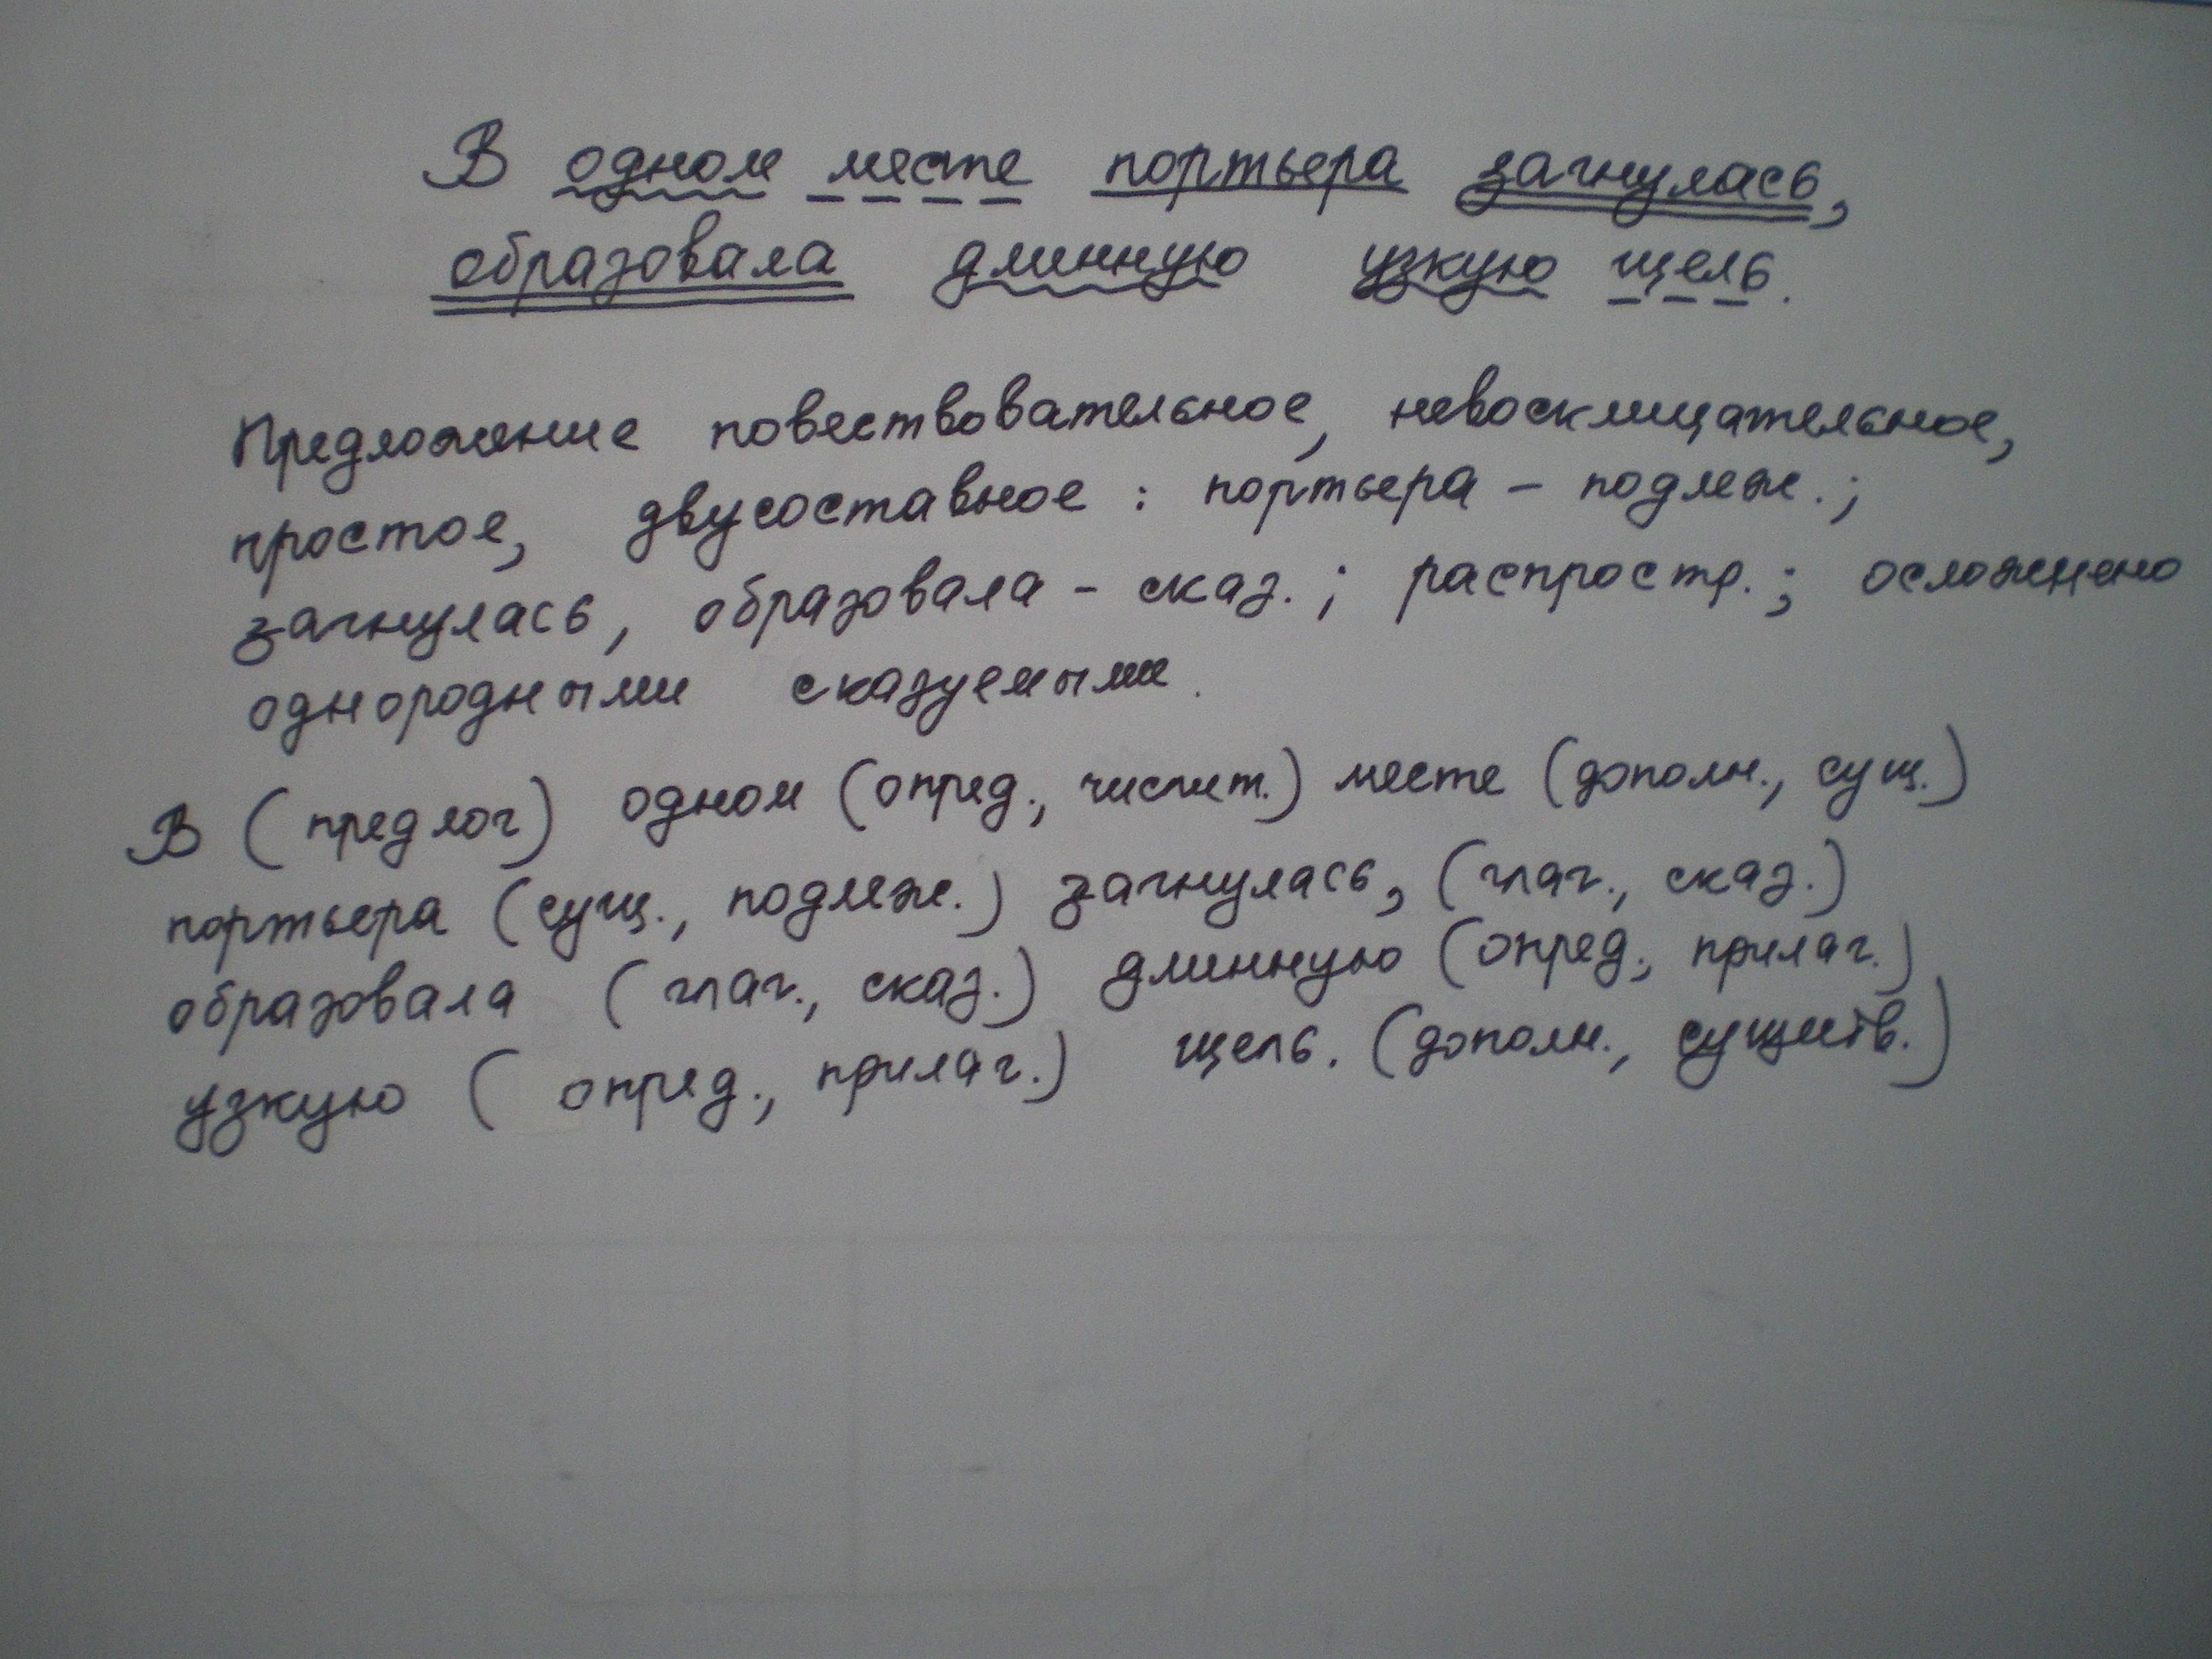 В одном месте портьера загнулась,
образовала длинную узкую щель.
Предложение повествовательное, невосклицательное,
простое, двусоставное : портьера – подлеж. ;
загнулась, образовала – сказ. ; распростр. ; осложнено
однородными сказуемыми .
В (предлог) одном (опред., числит.) месте (дополн., сущ.)
портьера (сущ., подлеж.) загнулась, (глаг., сказ.)
образовала (глаг., сказ.) длинную (опред., прилаг.)
узкую (опред., прилаг.) щель. (дополн., существ.)